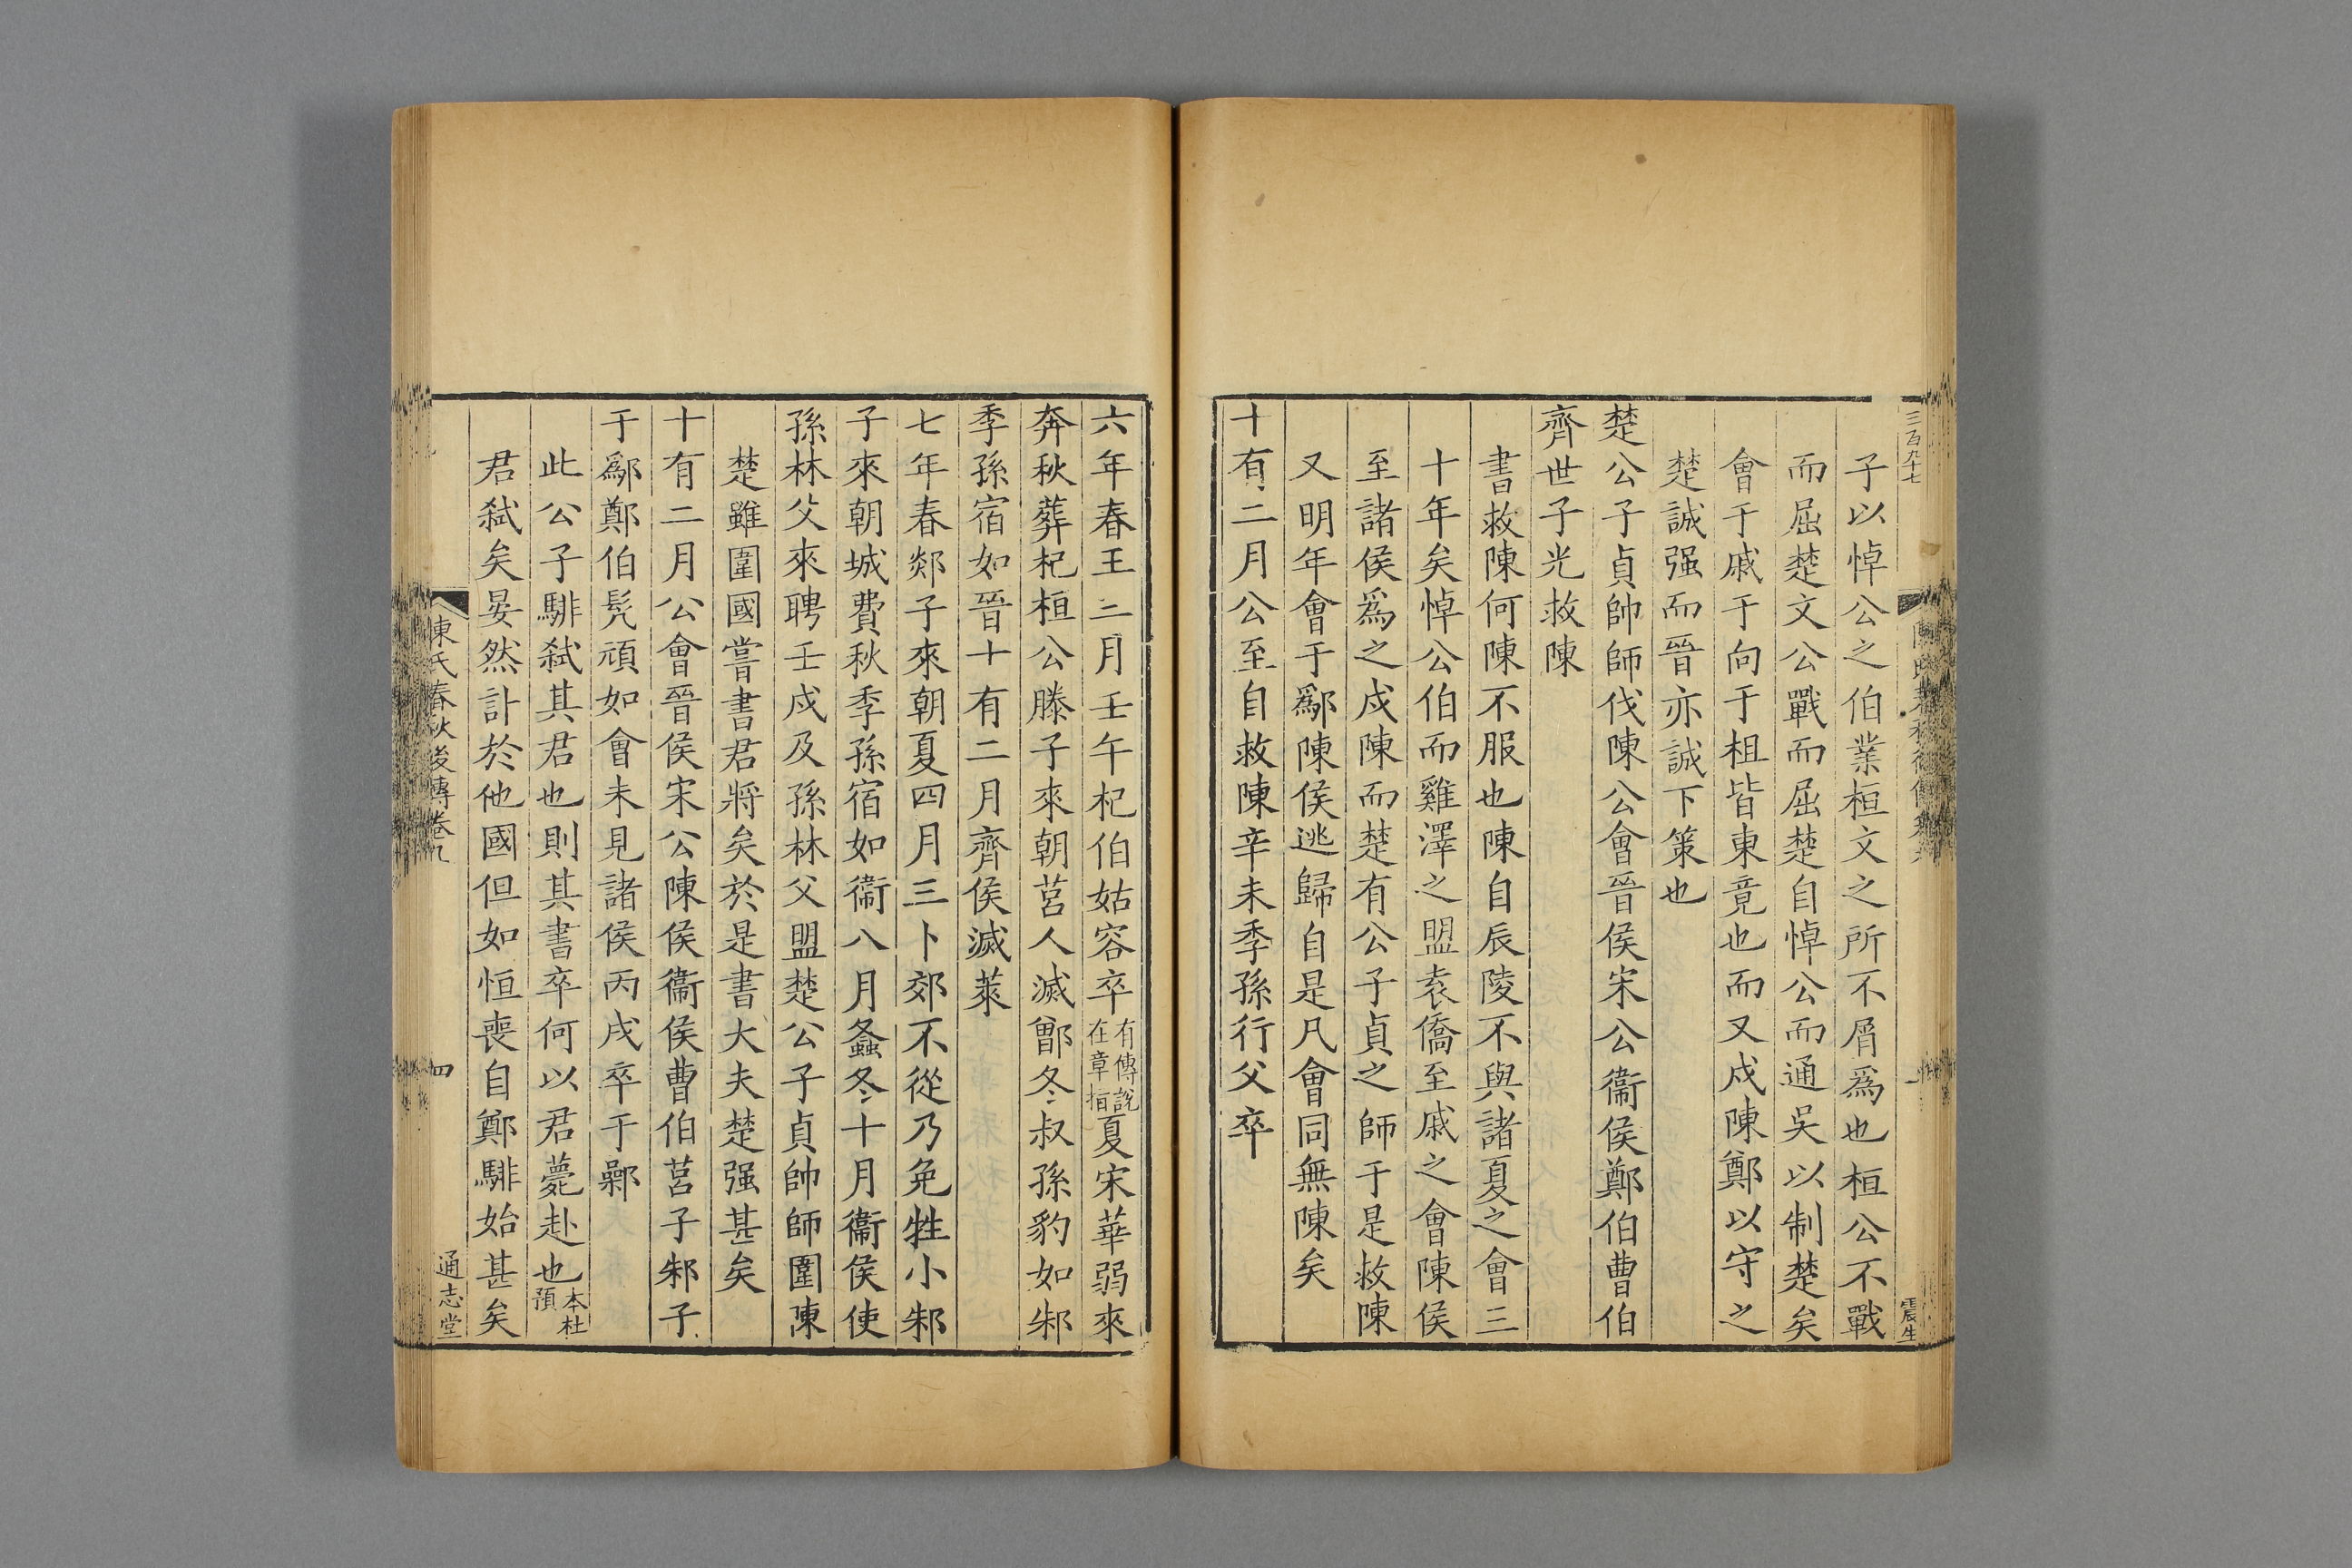 三百九十七
子以悼公之伯業桓文之所不屑爲也桓公不戰
而屈楚文公戰而屈楚自悼公而通吳以制楚矣
會于戚于向于柤皆東竟也而又戍陳鄭以守之
楚誠强而晉亦誠下策也
楚公子貞帥師伐陳公會晉侯宋公衞侯鄭伯曹伯
齊世子光救陳
書救陳何陳不服也陳自辰陵不與諸夏之會三
十年矣悼公伯而雞澤之盟袁僑至戚之會陳侯
至諸侯爲之戍陳而楚有公子貞之師于是救陳
又明年會于鄬陳侯逃歸自是凡會同無陳矣
十有二月公至自救陳辛未季孫行父卒
震生
六年春王三月壬午杞伯姑容卒有傳說在章指夏宋華弱來
奔秋葬杞桓公滕子來朝莒人滅鄫冬叔孫豹如邾
季孫宿如晉十有二月齊侯滅萊
七年春郯子來朝夏四月三卜郊不從乃免牲小邾
子來朝城費秋季孫宿如衞八月螽冬十月衞侯使
孫林父來聘壬戌及孫林父盟楚公子貞帥師圍陳
楚雖圍國嘗書君將矣於是書大夫楚强甚矣
十有二月公會晉侯宋公陳侯衞侯曹伯莒子邾子
于鄬鄭伯髡頑如會未見諸侯丙戌卒于鄵
此公子騑弑其君也則其書卒何以君薨赴也本杜預
君弑矣晏然計於他國但如恒喪自鄭騑始甚矣
陳氏春秋後傳卷九
四
通志堂